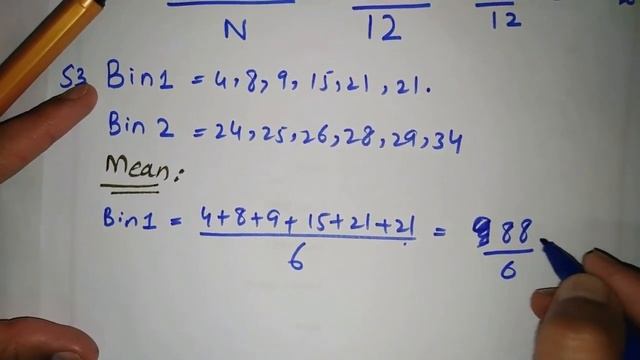 N 12 12
S3 Bin1 = 4, 8, 9, 15, 21, 21.
Bin 2 = 24, 25, 26, 28, 29, 34
Mean:
Bin1 = 4+8+9+15+21+21 = 88
6 6